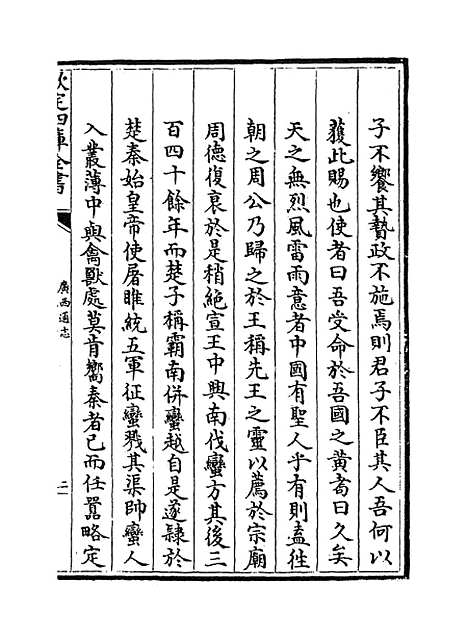 子不饗其贄政不施焉則君子不臣其人吾何以
獲此賜也使者曰吾受命於吾國之黄耇曰久矣
天之無烈風雷雨意者中國有聖人乎有則盍徃
朝之周公乃歸之於王稱先王之靈以薦於宗廟
周徳復衰於是稍絶宣王中興南伐蠻方其後三
百四十餘年而楚子稱霸南併蠻越自是遂隸於
楚秦始皇帝使屠睢統五軍征蠻戮其渠帥蠻人
入叢薄中與禽獸處莫肯嚮秦者已而任囂略定
欽定四庫全書
廣西通志
二